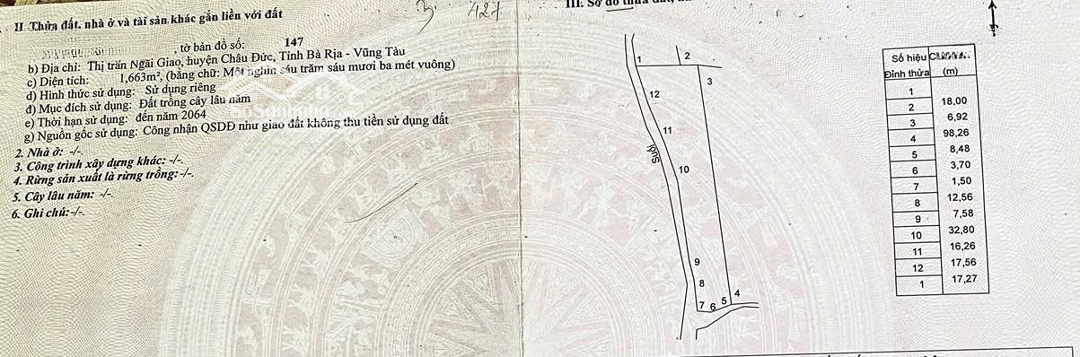 II Thửa đất, nhà ở và tài sản khác gắn liền với đất
, tờ bản đồ số: 147
b) Địa chỉ: Thị trấn Ngãi Giao, huyện Châu Đức, Tỉnh Bà Rịa - Vũng Tàu
c) Diện tích: 1,663m², (bằng chữ: Một nghìn sáu trăm sáu mươi ba mét vuông)
d) Hình thức sử dụng: Sử dụng riêng
đ) Mục đích sử dụng: Đất trồng cây lâu năm
e) Thời hạn sử dụng: đến năm 2064
g) Nguồn gốc sử dụng: Công nhận QSDĐ như giao đất không thu tiền sử dụng đất
2. Nhà ở: -/-.
3. Công trình xây dựng khác: -/-.
4. Rừng sản xuất là rừng trồng: -/-.
5. Cây lâu năm: -/-.
6. Ghi chú: -/-.
III. Sơ đồ thửa đất,
1
2
3
12
11
Suối
10
9
8
7 6 5 4
Số hiệu
Đỉnh thửa (m)
1
18,00
2
6,92
3
98,26
4
8,48
5
3,70
6
1,50
7
12,56
8
7,58
9
32,80
10
16,26
11
17,56
12
17,27
1